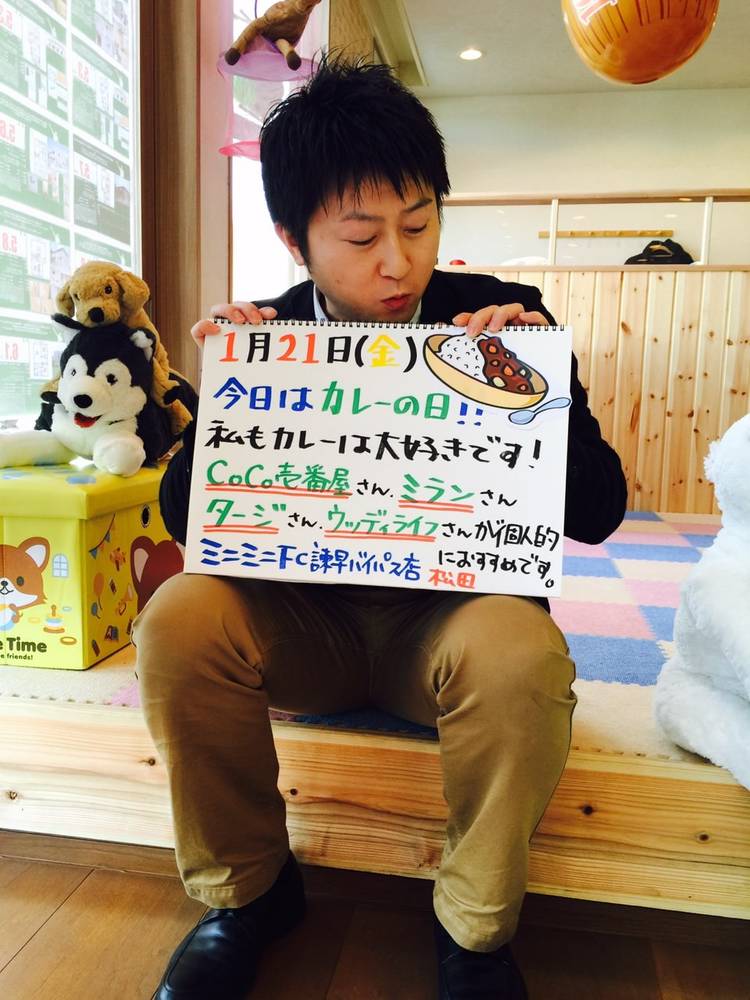 1月21日(金)
今日はカレーの日!!
私もカレーは大好きです!
CoCo壱番屋さん、ミランさん
タージさん、ウッディライフさんが個人的
におすすめです。
ミニミニFC諫早バイパス店 松田
e Time
e friends!
5.6
5.7
5.8
6.1